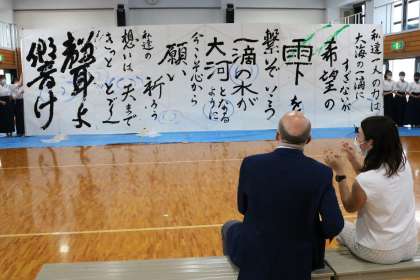 私達一人の力は
大海の一滴に
すぎないが
希望の
雨下を
繋ぐぞう
一滴の水が
大河となる
ように
今こそ心から
願い
祈ろう
私達の
想いは天まで
きっととどく
聲よ
響け